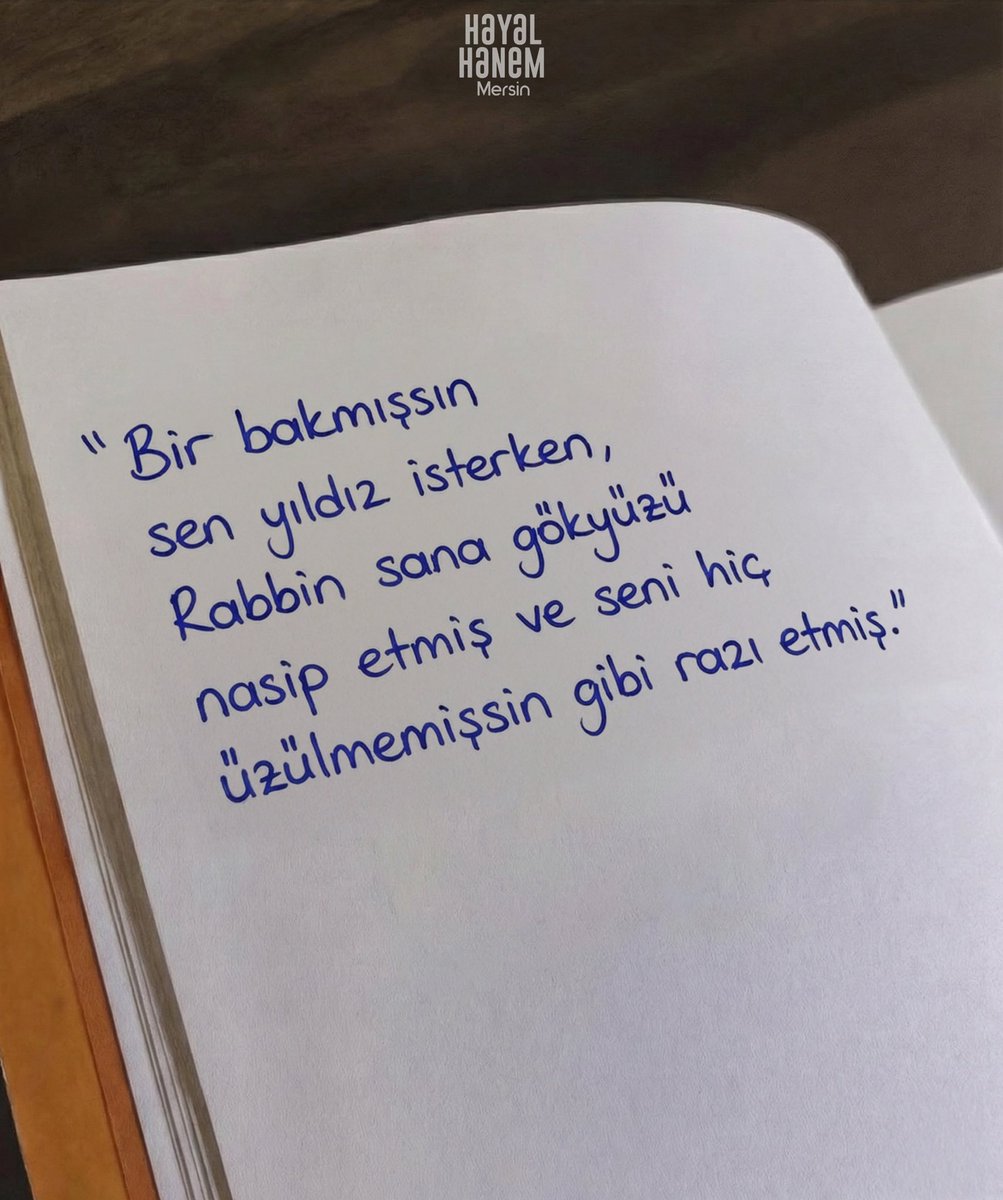 HAYAL
HANEM
Mersin
"Bir bakmışsın
sen yıldız isterken,
Rabbin sana gökyüzü
nasip etmiş ve seni hiç
üzülmemişsin gibi razı etmiş."